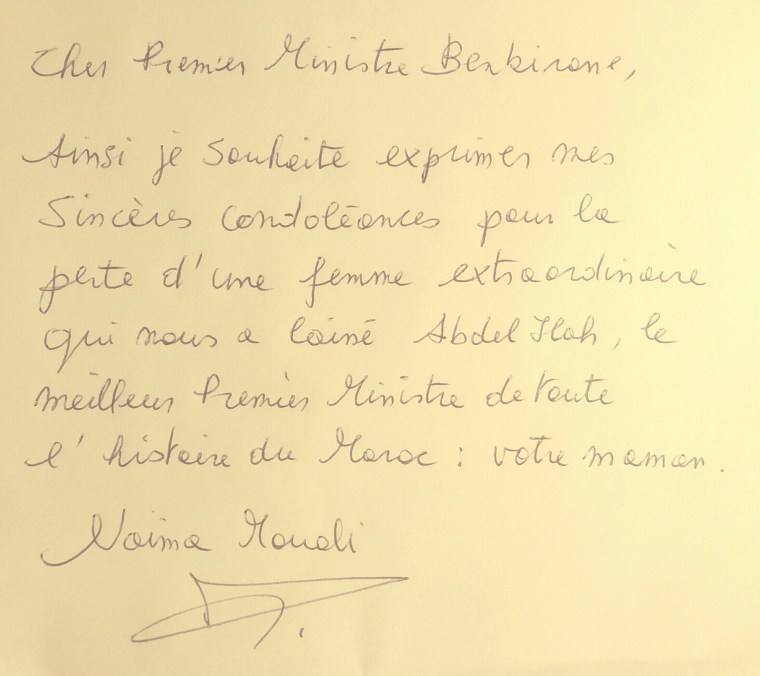 Cher Premier Ministre Benkirane,
Ainsi je souhaite exprimer mes
sincères condoléances pour la
perte d'une femme extraordinaire
qui nous a laissé Abdel Ilah, le
meilleur Premier Ministre de toute
l'histoire du Maroc : votre maman.
Naima Mouali